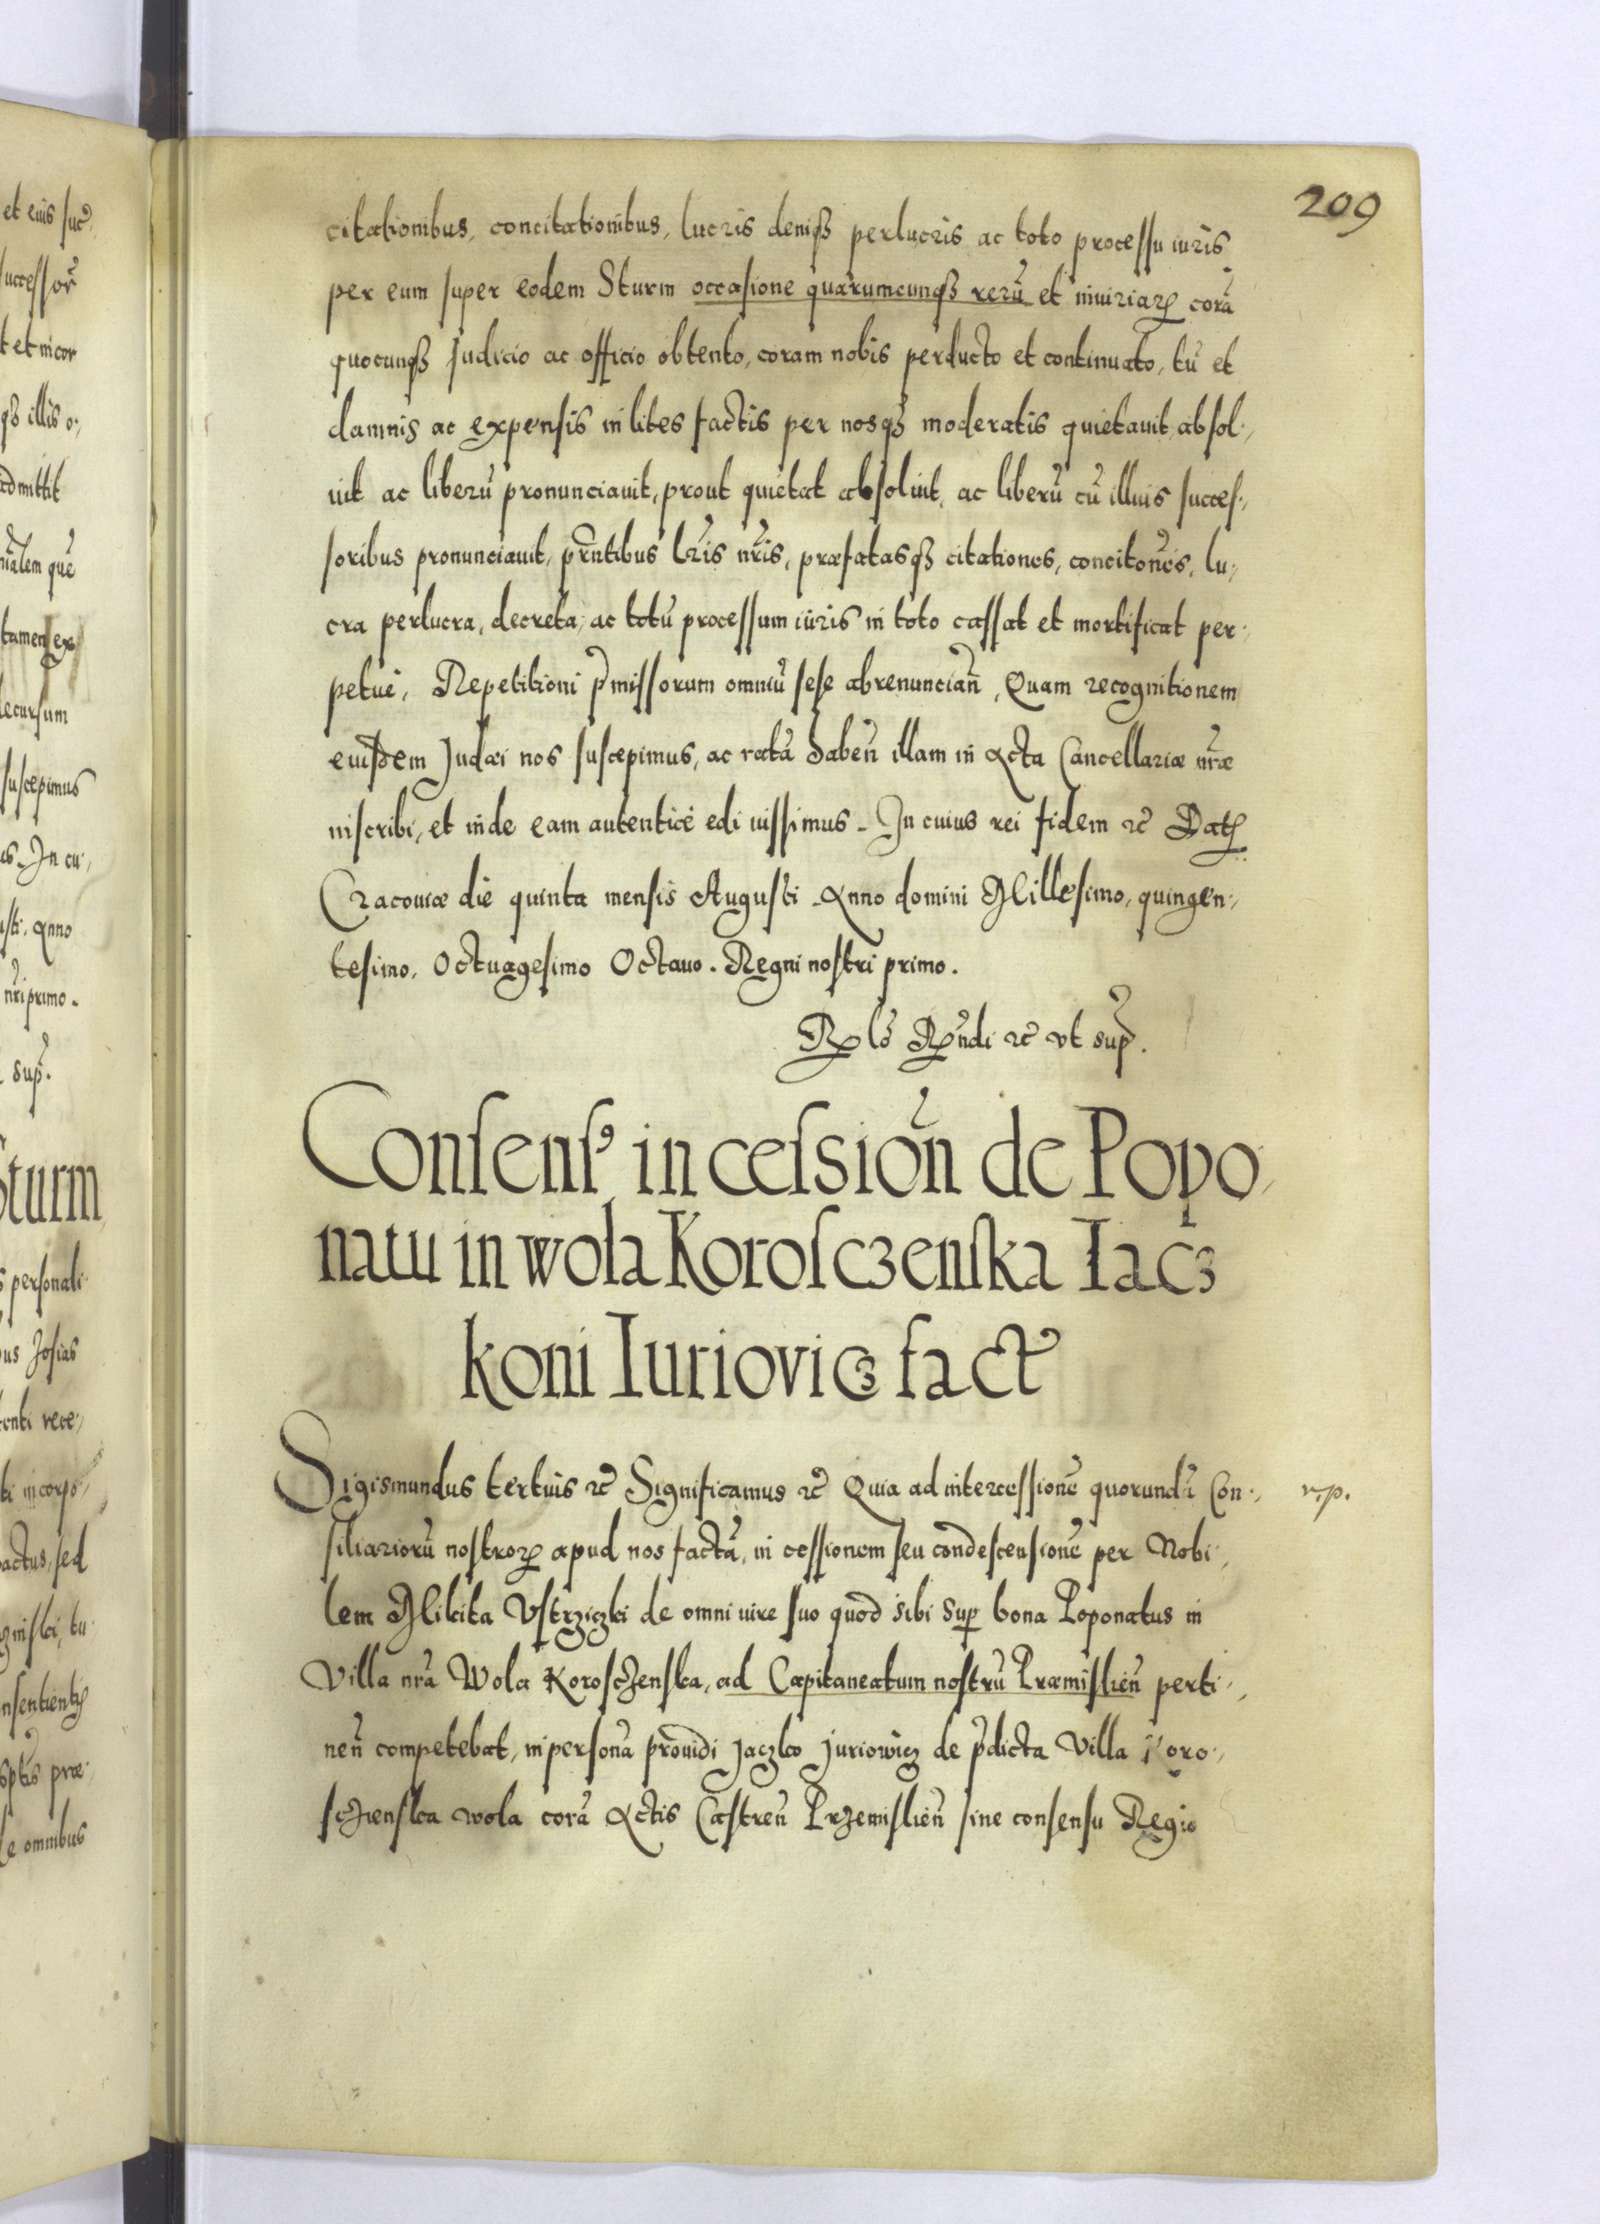 209
citationibus, concitationibus, lucris deniqȝ perlucris ac toto processu iuris
per eum super eodem Sturm occasione quarumcunqȝ rerū et iniuriaꝝ corā
quocunqȝ Judicio ac officio obtento, coram nobis perducto et continuato, tū et
damnis ac expensis in lites factis per nosqȝ moderatis quietauit, absol-
uit ac liberū pronunciauit, prout quietat absoluit, ac liberū cū illius succes-
soribus pronunciauit, prn̄tibus lr̄is nr̄is, præfatasqȝ citationes, concitōnes, lu-
cra perlucra, decreta, ac totū processum iuris in toto cassat et mortificat per-
petuè, Repetitioni p̄missorum omniū sese abrenuncian̄, Quam recognitionem
eiusdem Judæi nos suscepimus, ac ratā haben̄ illam in Acta Cancellariæ nr̄æ
inscribi, et inde eam autenticè edi iussimus. In cuius rei fidem ꝛc Datꝭ
Cracouiæ die quinta mensis Augusti Anno domini Millesimo, quingen-
tesimo, Octuagesimo Octauo. Regni nostri primo.
Rꝑ lō Rn̄di ꝛc vt sup̄.
Consensꝰ in cessiōn de Popo
natu in wola Korosczenska Iacz
koni Iuriovicz fact
Sigismundus tertius ꝛc Significamus ꝛc Quia ad intercessionē quorundā Con-
r. p.
siliariorū nostroꝝ apud nos factā, in cessionem seu condescensionē per Nobi-
lem Mikita Vstrziczki de omni iure suo quod sibi sup̄ bona Poponatus in
Villa nr̄a Wola Korosczenska, ad Capitaneatum nostrū Præmislien̄ perti-
nen̄ competebat, in personā prouidi Jaczko Juriowicz de p̄dicta Villa Koro-
sczienska wola corā Actis Castren̄ Przemislien̄ sine consensu Regio